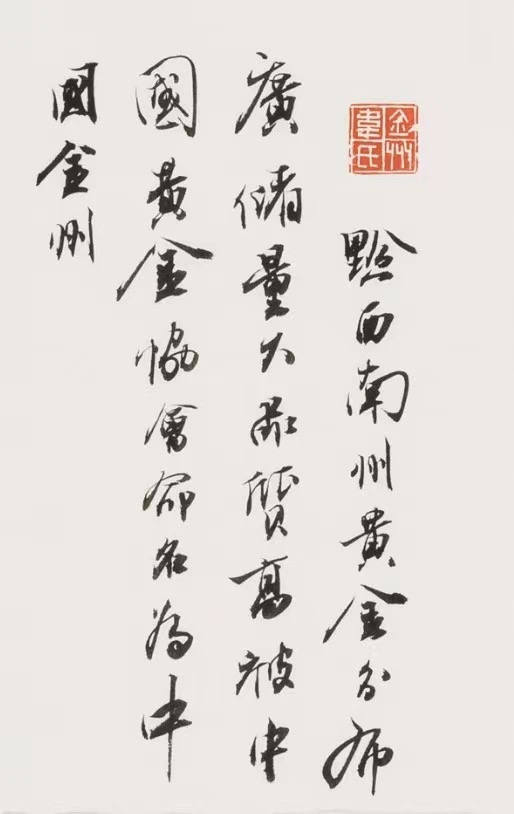 金州韋氏
黔西南州黄金分布
廣儲量大品質高被中
國黄金協會命名為中
國金州